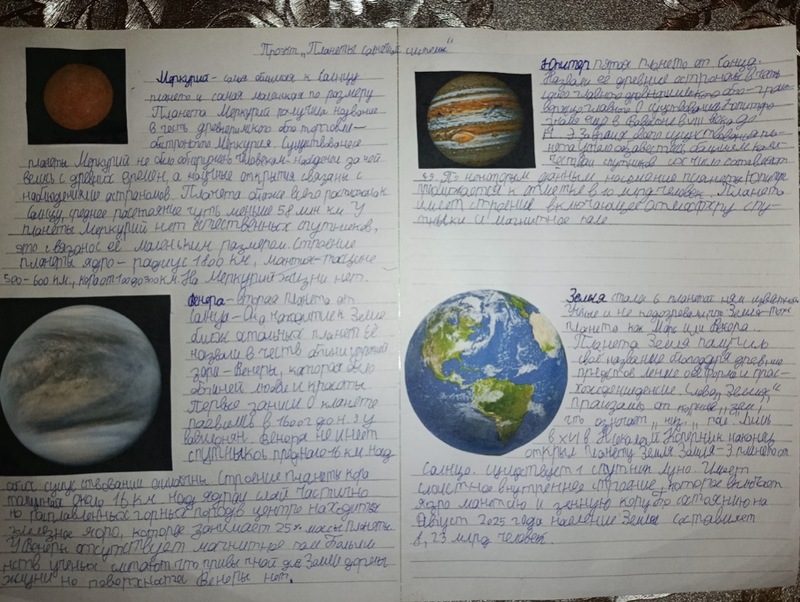 Проект „Планеты солнечной системы"
Меркурий - самая близкая к Солнцу
планета и самая маленькая по размеру
Планета Меркурий получила название
в честь древнеримского бога торговли -
быстроногого Меркурия. Существование
планеты Меркурий не было
с древних времен, а научные открытия связаны с
наблюдением астрономов. Планета ближе всего расположена к
Солнцу, среднее расстояние чуть меньше 58 млн км У
планеты Меркурий нет естественных спутников,
это связано с её маленьким размером. Строение
планеты ядро - радиус 1800 км, мантия - толщина
500-600 км, кора от 100 до 300 км. На Меркурии жизни нет.
Венера - вторая планета от
Солнца - Она находится к Земле
ближе остальных планет Её
назвали в честь
зари - Венеры, которая была
богиней любви и красоты
Первые записи о планете
появились в 1600 г до н.э у
вавилонян Венера не имеет
спутников, 16 км над
существовании Строение планеты кора
толщиной около 16 км над ядром слой частично
расплавленных горных пород в центре находится
железное ядро, которое занимает 25% массы планеты
У Венеры отсутствует магнитное поле Больши
нств ученых считают что привычной для Земли формы
жизни на поверхности Венеры нет.
Юпитер пятая планета от Солнца.
Назвали её древние астрономы в честь
главного древнеримского бога - гром
О существовании Юпитера
знали ещё в Вавилоне в VIII веке до
н э За время своего существования пла
нета Юпитер обзавелась большим коли
чеством спутников их число составляет
По некоторым данным население планеты Юпитер
приближается к отметке в 10 млрд человек. Планета
имеет строение включающее атмосферу спу
тники и магнитное поле.
Земля стала 6 планетой
Ученые и не подозревали что Земля - тоже
планета как Марс или Венера.
Планета Земля получила
своё название благодаря древне
Слово „Земля"
произошло от корня „зем",
что означает „низ", „пол". Лишь
в XVI в Николай Коперник наконец
открыл планету Земля Земля - 3 планета от
Солнца. существует 1 спутник Луна. Имеет
слоистое внутреннее строение, которое включает
ядро мантию и земную кору По состоянию на
Август 2025 года население Земли составляет
8,23 млрд человек.